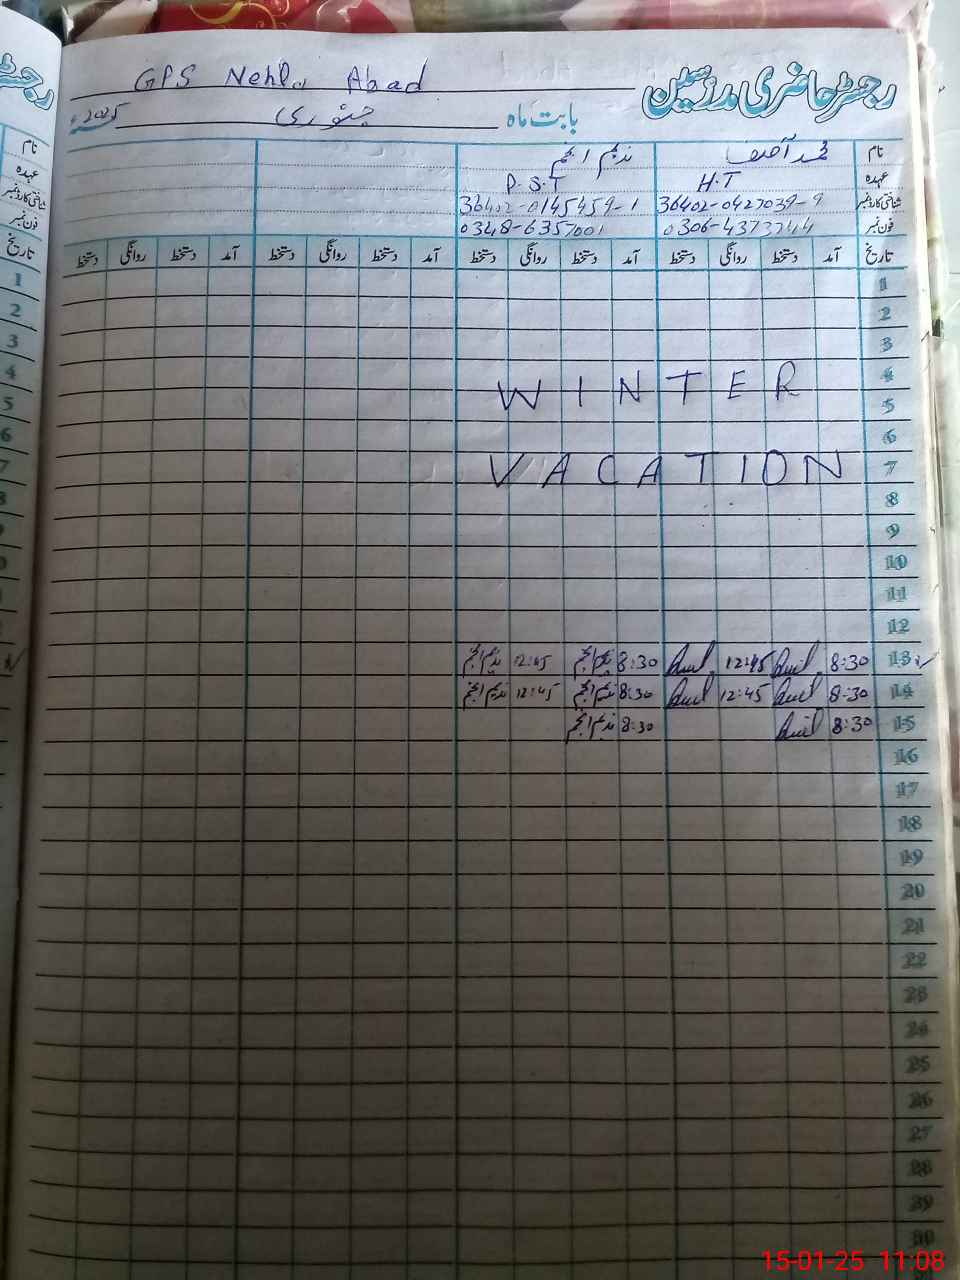 رجسٹر حاضری مدرسین GPS Abad
بابت ماہ جنوری 2025ء
نام محمد آصف ندیم انجم
عہدہ H.T P.S.T
شناختی کارڈ نمبر 36402-0427039-9 36402-0145459-1
فون نمبر 0306-4373744 0348-6357001
تاریخ آمد دستخط روانگی دستخط آمد دستخط روانگی دستخط آمد دستخط روانگی دستخط آمد دستخط روانگی دستخط
1
2
3
4
WINTER
5
6
7 VACATION
8
9
10
11
12
13 8:30 12:45 8:30 ندیم انجم 12:45 ندیم انجم
14 8:30 12:45 8:30 ندیم انجم 12:45 ندیم انجم
15 8:30 8:30 ندیم انجم
16
17
18
19
20
21
22
23
24
25
26
27
28
29
30
رجسٹر
نام
عہدہ
شناختی کارڈ نمبر
فون نمبر
تاریخ
1
2
3
4
5
6
7
15-01-25 11:08